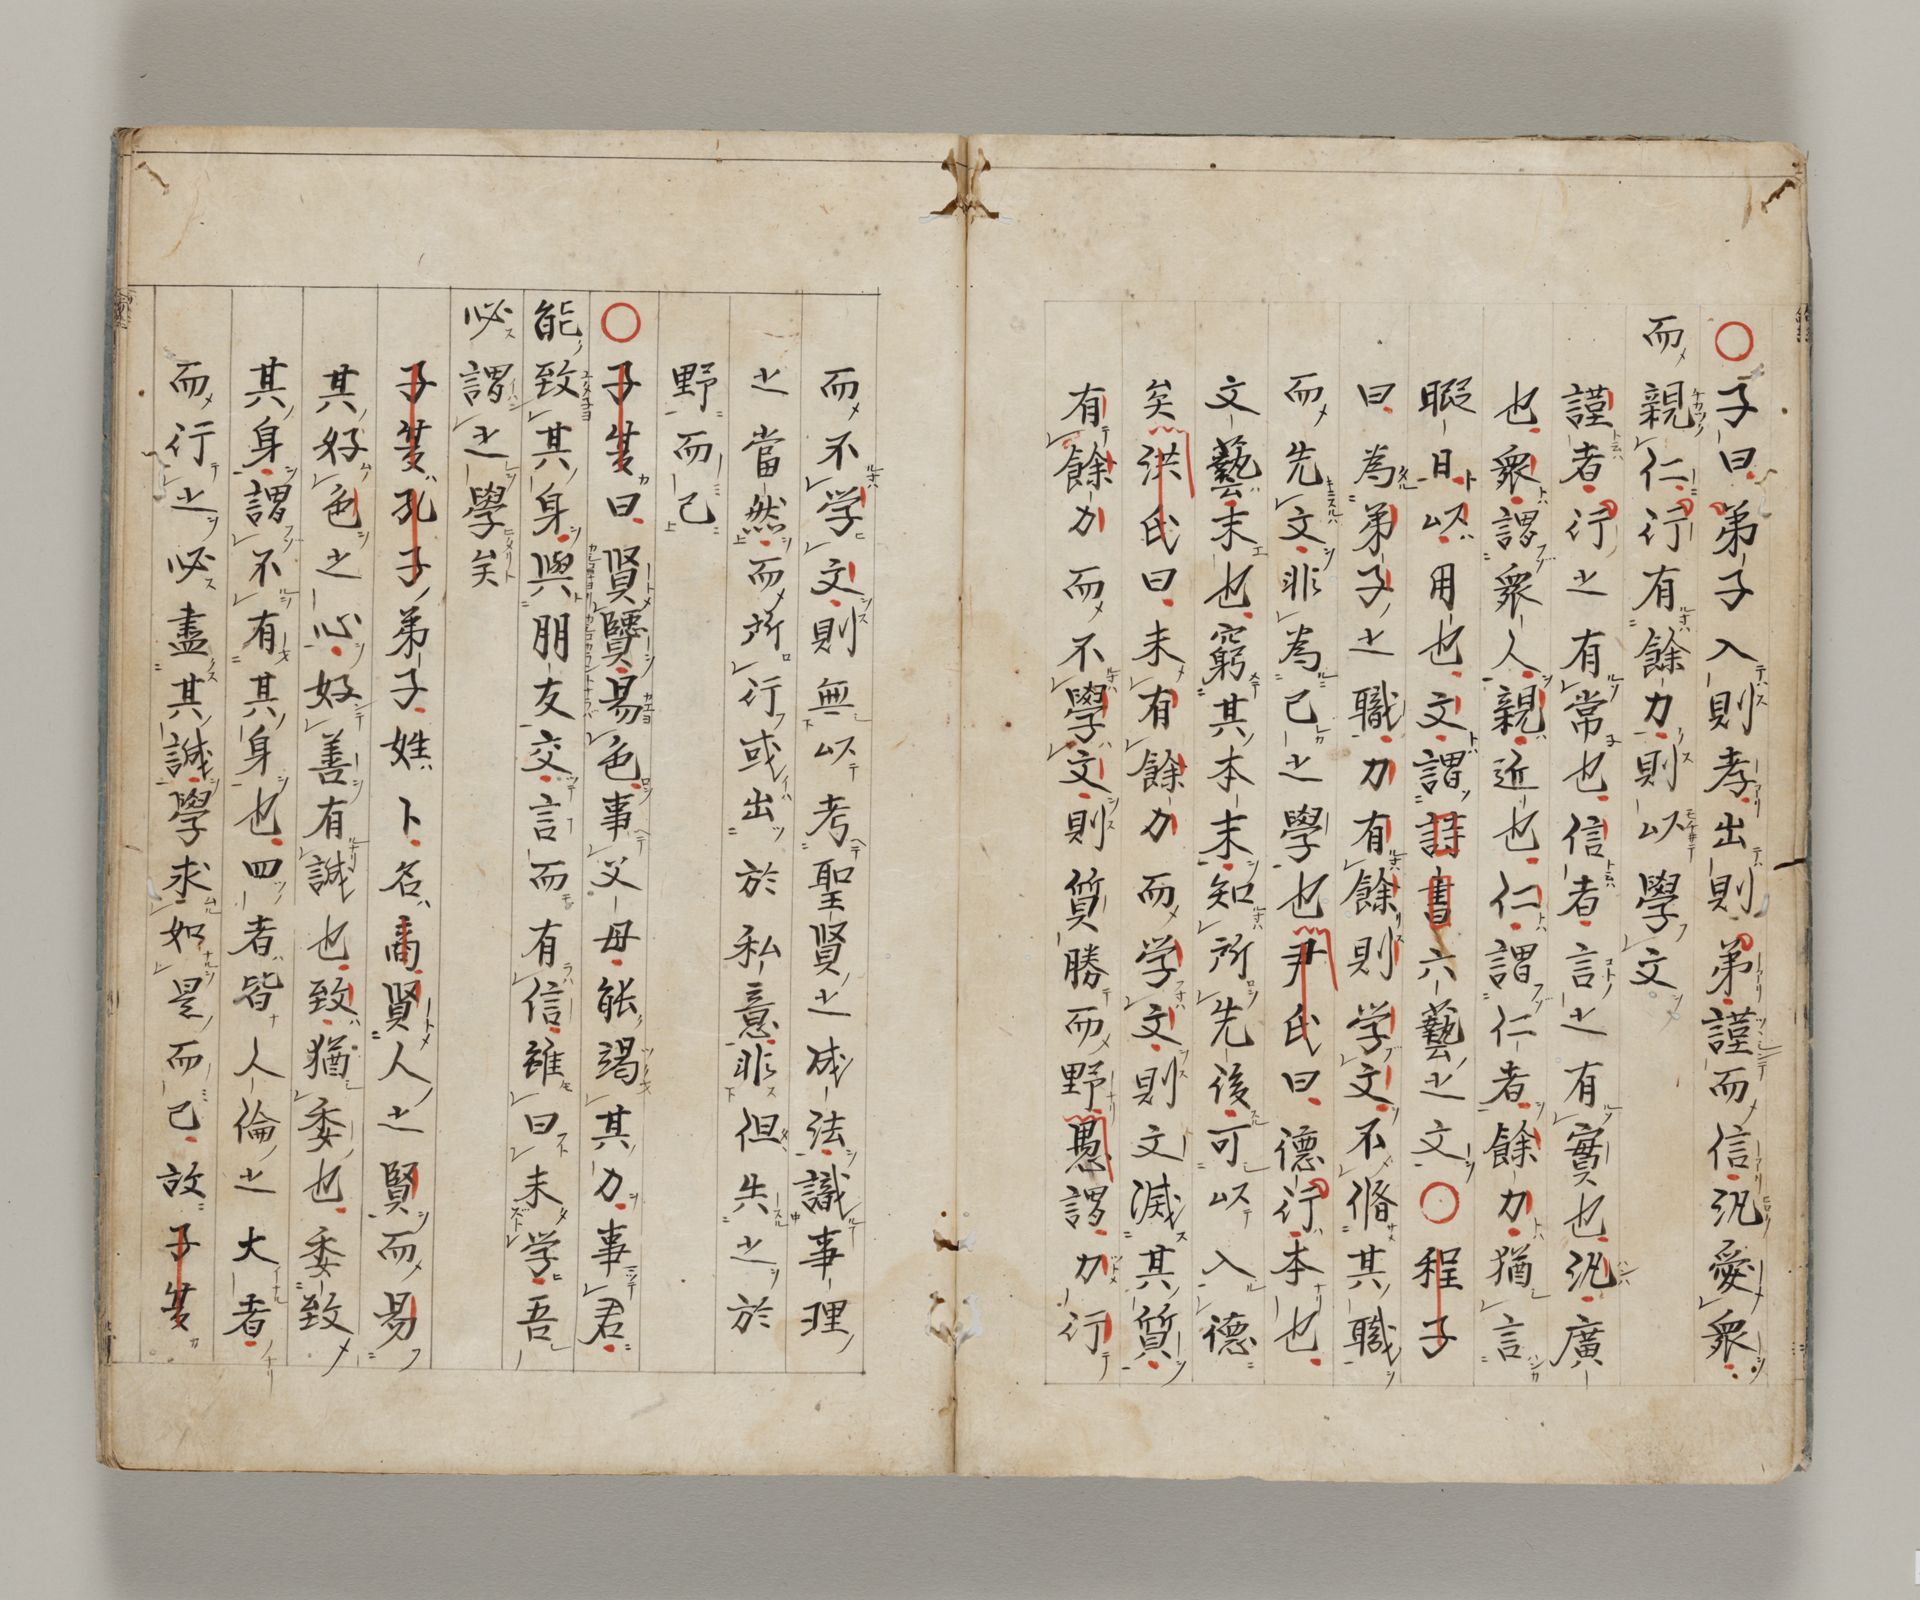 ○子曰弟子入則孝出則弟謹而信汎愛衆
而親仁行有餘力則以學文
謹者行之有常也信者言之有實也汎廣
也衆謂衆人親近也仁謂仁者餘力猶言
暇日以用也文謂詩書六藝之文○程子
曰為弟子之職力有餘則学文不脩其職
而先文非為己之學也尹氏曰德行本也
文藝末也窮其本末知所先後可以入德
矣洪氏曰未有餘力而学文則文滅其質
有餘力而不學文則質勝而野愚謂力行
而不学文則無以考聖賢之成法識事理
之當然而所行或出於私意非但失之於
野而已
○子夏曰賢賢易色事父母能竭其力事君
能致其身與朋友交言而有信雖曰未学吾
必謂之學矣
子夏孔子弟子姓卜名商賢人之賢而易
其好色之心好善有誠也致猶委也委致
其身謂不有其身也四者皆人倫之大者
而行之必盡其誠學求如是而已故子夏